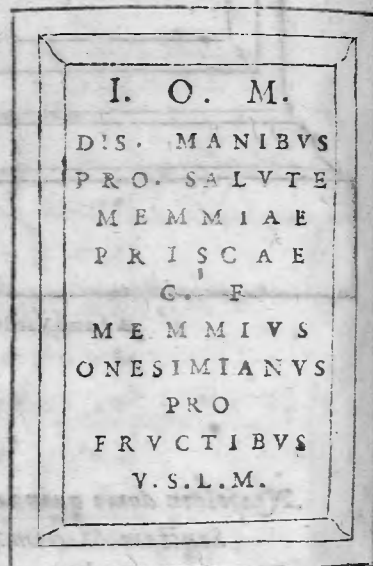 I. O. M.
DIS. MANIBVS
PRO. SALVTE
MEMMIAE
PRISCAE
C. F
MEMMIVS
ONESIMIANVS
PRO
FRVCTIBVS
V.S.L.M.